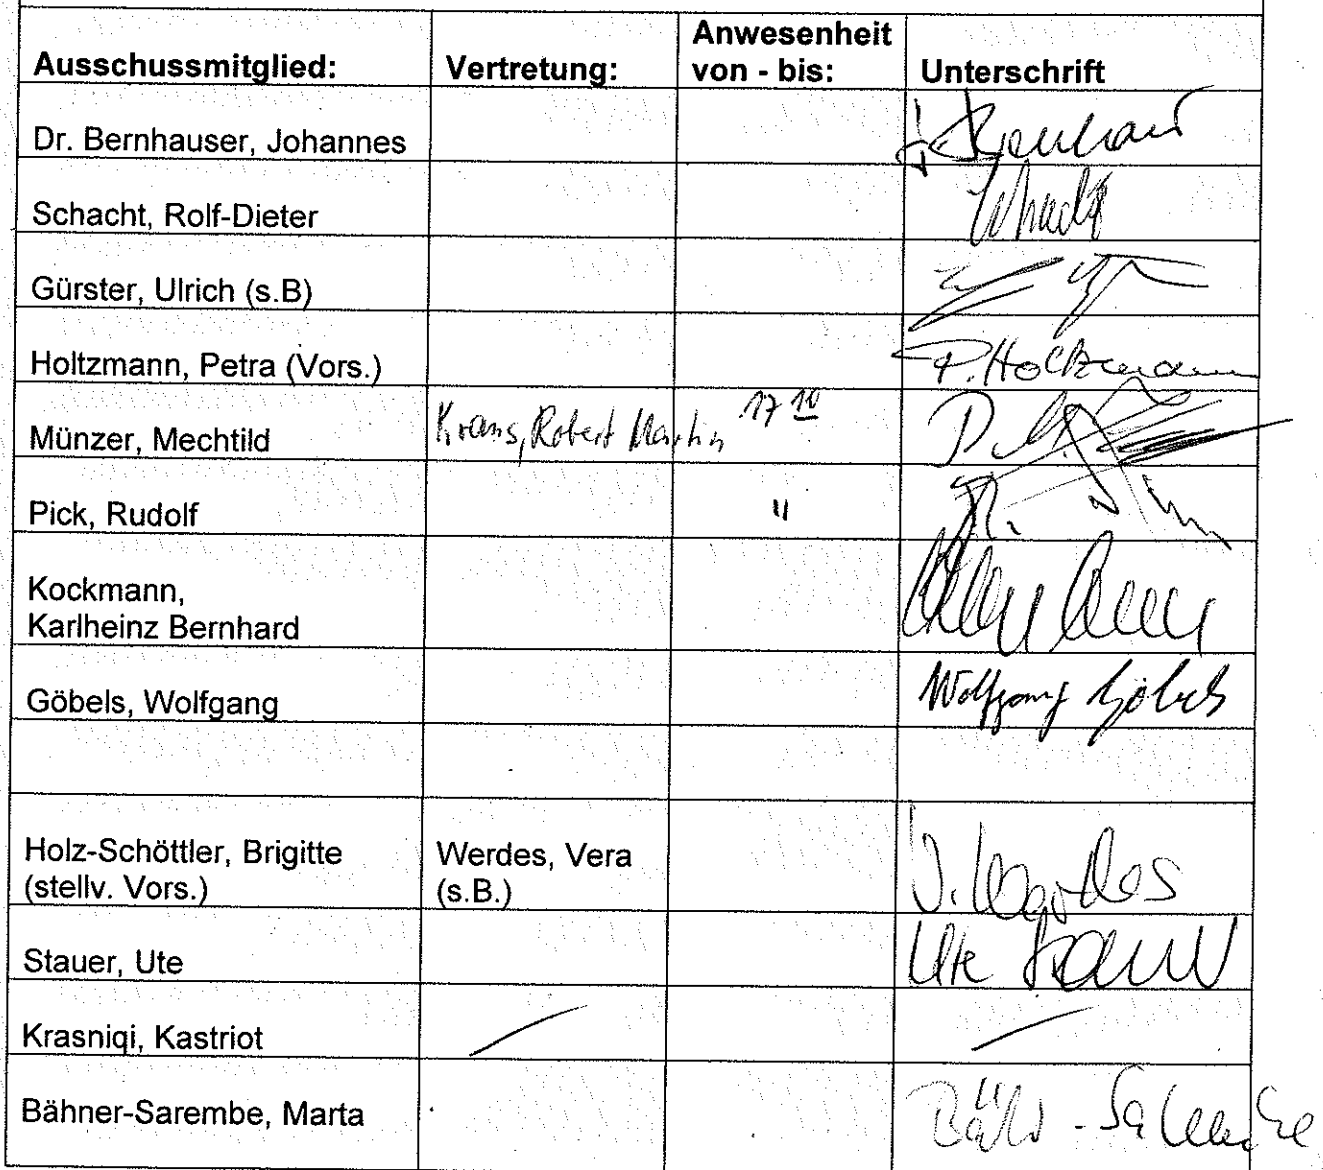 Ausschussmitglied: Vertretung: Anwesenheit von - bis: Unterschrift
Dr. Bernhauser, Johannes
Schacht, Rolf-Dieter
Gürster, Ulrich (s.B)
Holtzmann, Petra (Vors.) P. Holtzmann
Münzer, Mechtild Robert Martin 17 10
Pick, Rudolf "
Kockmann,
Karlheinz Bernhard
Göbels, Wolfgang Wolfgang Göbels
Holz-Schöttler, Brigitte Werdes, Vera
(stellv. Vors.) (s.B.)
V. Werdes
Stauer, Ute Ute Stauer
Krasniqi, Kastriot
Bähner-Sarembe, Marta